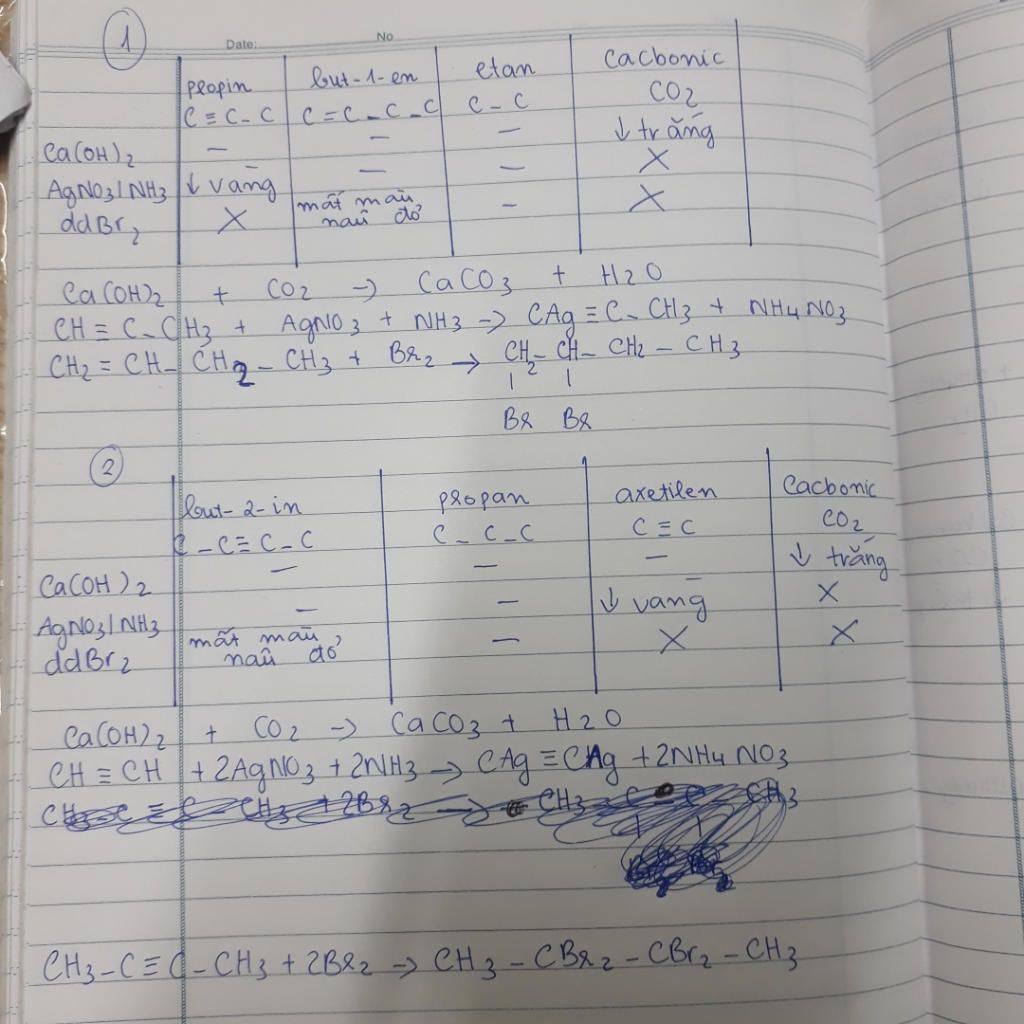 1
Date: No
propin but-1-en etan cacbonic
C≡C-C C=C-C-C C-C CO2
Ca(OH)2 - - - ↓ trắng
AgNO3/NH3 ↓ vàng - - X
ddBr2 X mất màu nâu đỏ - X
Ca(OH)2 + CO2 → CaCO3 + H2O
CH≡C-CH3 + AgNO3 + NH3 → CAg≡C-CH3 + NH4NO3
CH2=CH-CH2-CH3 + Br2 → CH2-CH-CH2-CH3
Br Br
2
but-2-in propan axetilen cacbonic
C-C≡C-C C-C-C C≡C CO2
Ca(OH)2 - - - ↓ trắng
AgNO3/NH3 - - ↓ vàng X
ddBr2 mất màu nâu đỏ - X X
Ca(OH)2 + CO2 → CaCO3 + H2O
CH≡CH + 2AgNO3 + 2NH3 → CAg≡CAg + 2NH4NO3
CH3-C≡C-CH3 + 2Br2 → CH3-CBr2-CBr2-CH3